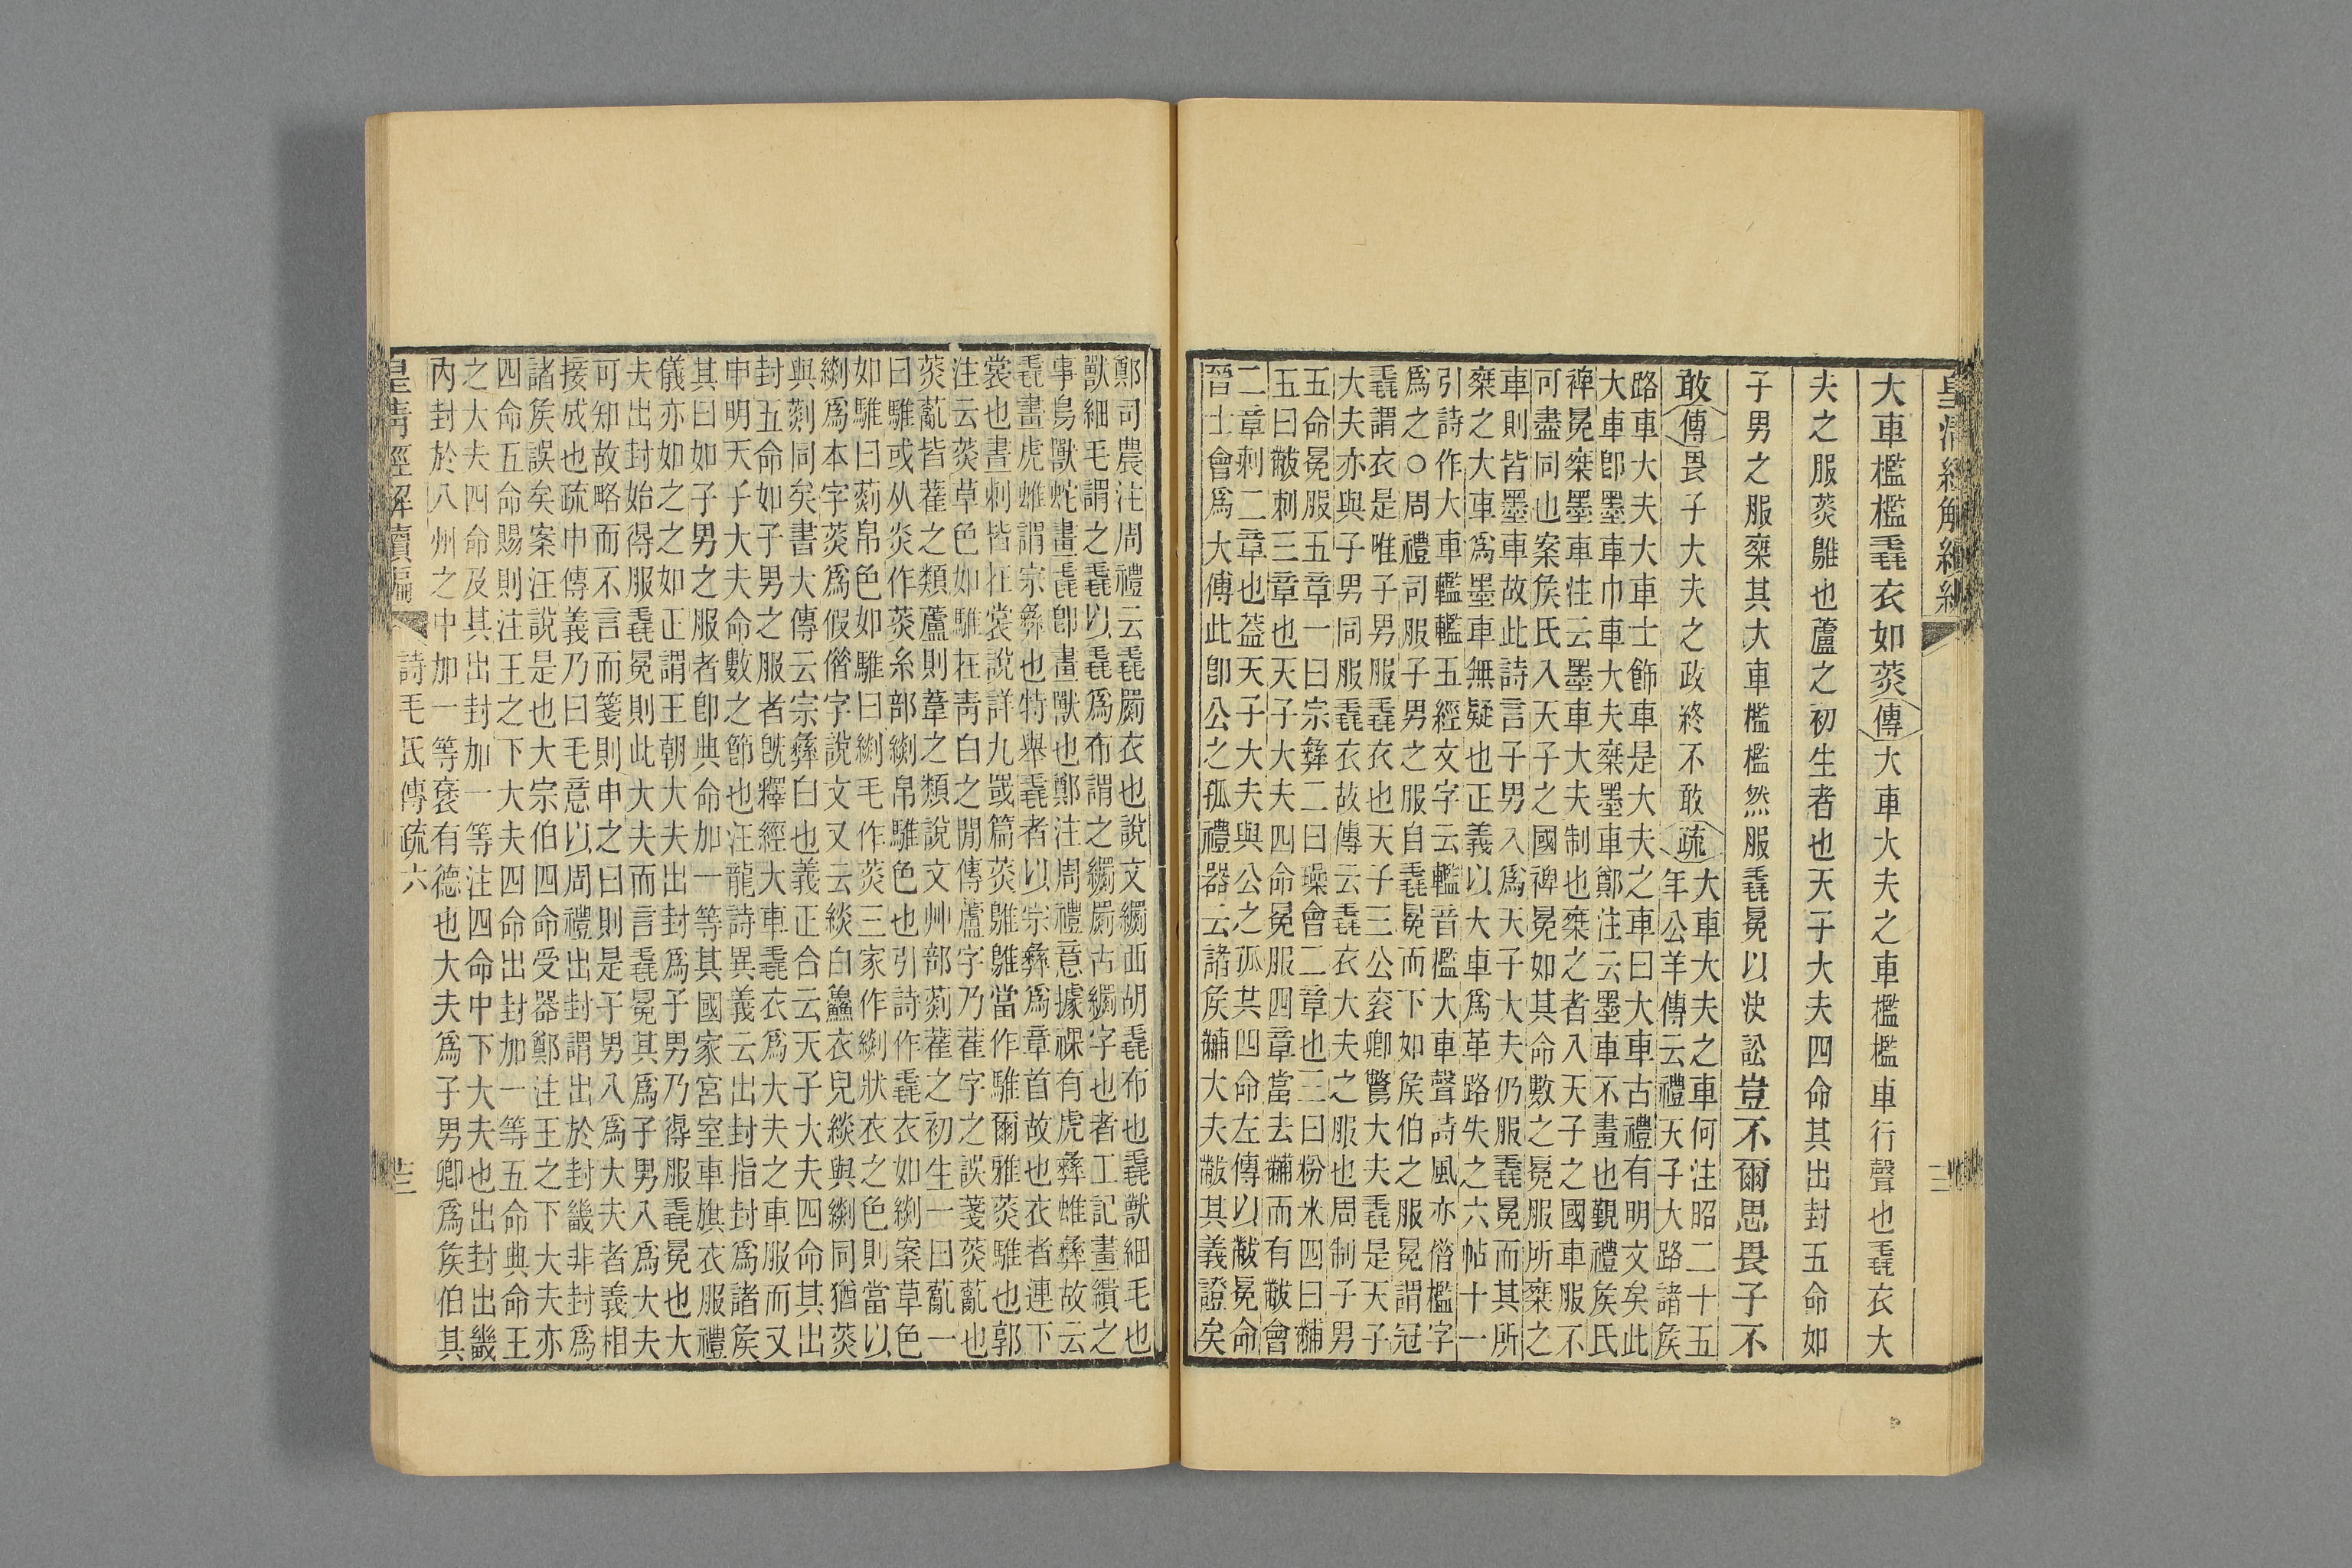 皇清經解續編
大車檻檻毳衣如菼傳大車大夫之車檻檻車行聲也毳衣大
夫之服菼鵻也蘆之初生者也天子大夫四命其出封五命如
子男之服椉其大車檻檻然服毳冕以決訟豈不爾思畏子不
敢傳畏子大夫之政終不敢疏大車大夫之車何注昭二十五
年公羊傳云禮天子大路諸矦
路車大夫大車士飾車是大夫之車曰大車古禮有明文矣此
大車卽墨車巾車大夫椉墨車鄭注云墨車不畫也覲禮矦氏
裨冕椉墨車注云墨車大夫制也椉之者入天子之國車服不
可盡同也案矦氏入天子之國裨冕如其命數之冕服所椉之
車則皆墨車故此詩言子男入爲天子大夫仍服毳冕而其所
椉之大車爲墨車無疑也正義以大車爲革路失之六帖十一
引詩作大車轞轞五經文字云轞音檻大車聲詩風亦借檻字
爲之○周禮司服子男之服自毳冕而下如矦伯之服冕謂冠
毳謂衣是唯子男服毳衣也天子三公袞卿鷩大夫毳是天子
大夫亦與子男同服毳衣故傳云毳衣大夫之服也周制子男
五命冕服五章一曰宗彝二曰璪會二章也三曰粉米四曰黼
五曰黻刺三章也天子大夫四命冕服四章當去黼而有黻會
二章刺二章也葢天子大夫與公之孤其四命左傳以黻冕命
晉士會爲大傅此卽公之孤禮器云諸矦黼大夫黻其義證矣
鄭司農注周禮云毳罽衣也說文𦇧西胡毳布也毳獸細毛也
獸細毛謂之毳以毳爲布謂之𦇧罽古𦇧字也考工記畫繢之
事鳥獸蛇畫毳卽畫獸也鄭注周禮意據祼有虎彝蜼彝故云
毳畫虎蜼謂宗彝也特舉毳者以宗彝爲章首故也衣者連下
裳也畫刺皆在裳說詳九罭篇菼鵻鵻當作騅爾雅菼騅也郭
注云菼草色如騅在靑白之閒傳蘆字乃萑字之誤箋菼薍也
菼薍皆萑之類蘆則葦之類說文艸部䓤萑之初生一曰薍一
曰騅或从炎作菼糸部帛騅色也引詩作毳衣如案草色
如騅曰䓤帛色如騅曰毛作菼三家作狀衣之色則當以
爲本字菼爲假借字說文又云緂白鱻衣皃緂與同猶菼
與䓤同矣書大傳云宗彝白也義正合云天子大夫四命其出
封五命如子男之服者旣釋經大車毳衣爲大夫之車服而又
申明天子大夫命數之節也汪龍詩異義云出封指封爲諸矦
其曰如子男之服者卽典命加一等其國家宮室車旗衣服禮
儀亦如之之如正謂王朝大夫出封爲子男乃得服毳冕也大
夫出封始得服毳冕則此大夫而言毳冕其爲子男入爲大夫
可知故略而不言而箋則申之曰則是子男入爲大夫者義相
接成也疏申傳義乃曰毛意以周禮出封謂出於封畿非封爲
諸矦誤矣案汪說是也大宗伯四命受器鄭注王之下大夫亦
四命五命賜則注王之下大夫四命出封加一等五命典命王
之大夫四命及其出封加一等注四命中下大夫也出封出畿
內封於八州之中加一等褒有德也大夫爲子男卿爲矦伯其
皇清經解續編 詩毛氏傳疏六